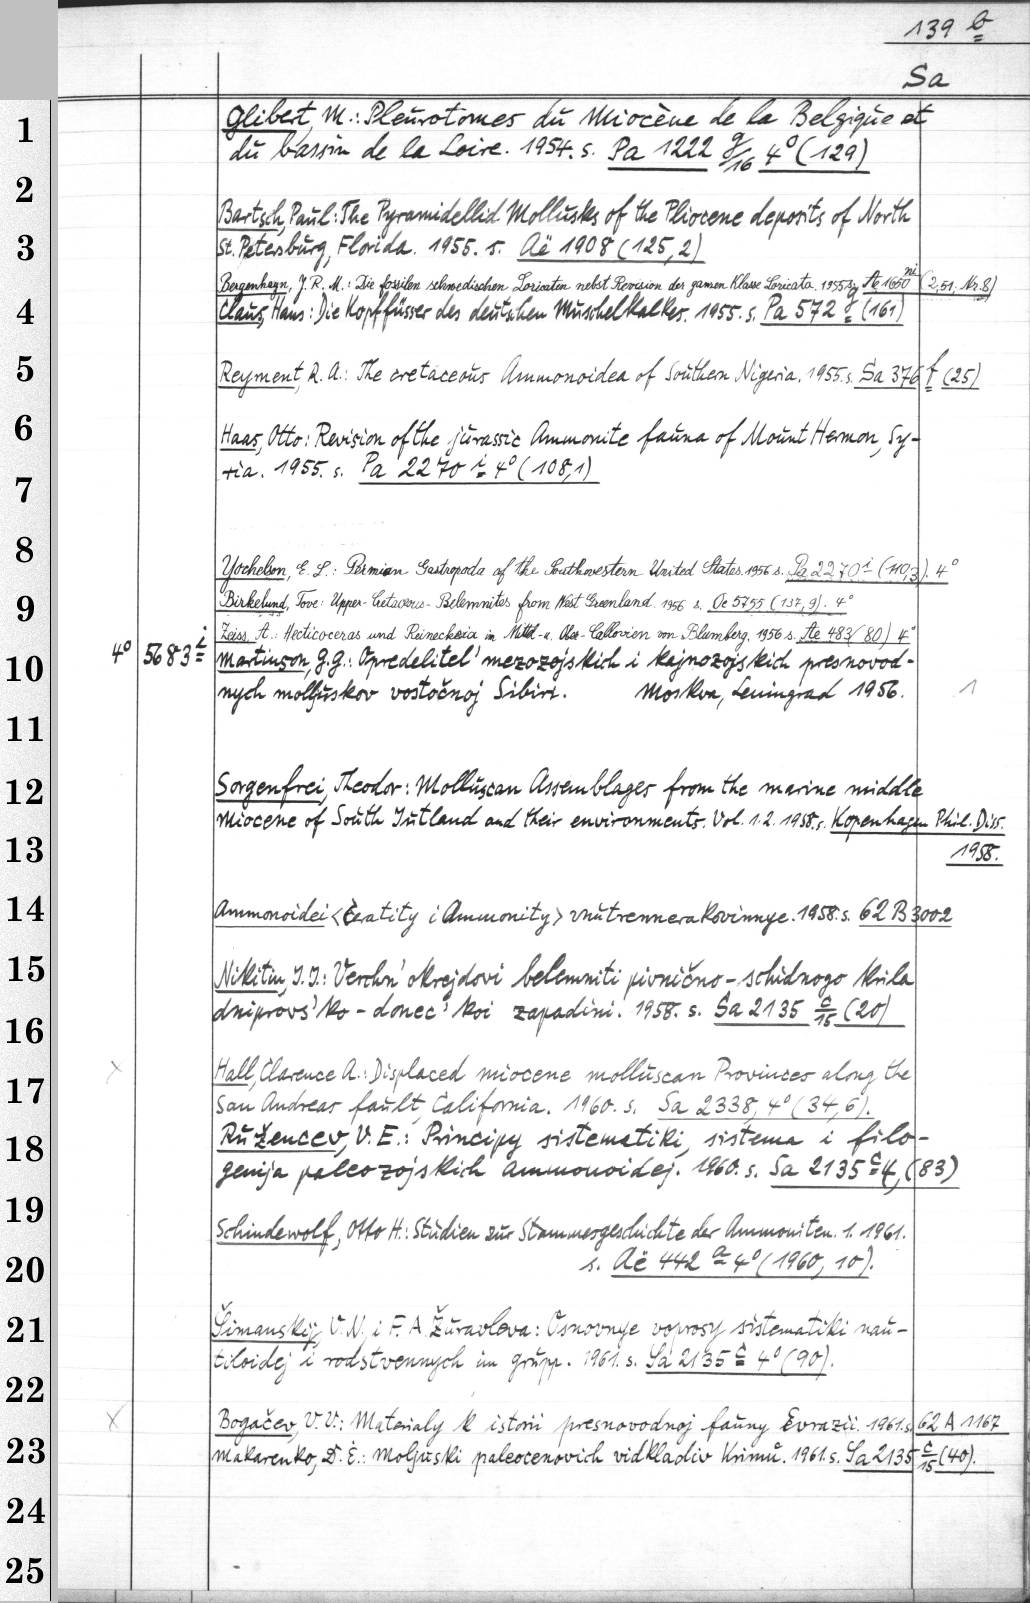 139 b
Sa
1
Glibert, M.: Pleurotomes du Miocène de la Belgique et
du bassin de la Loire. 1954. s. Pa 1222 g/16 4° (129)
2
Bartsch, Paul: The Pyramidellid Mollusks of the Pliocene deposits of North
3
St. Petersburg, Florida. 1955. s. Aë 1908 (125,2)
Bergenhayn, J. R. M.: Die fossilen schwedischen Loricaten nebst Revision der ganzen Klasse Loricata. 1955 s. Ae 1650 (2,51, Nr. 8)
4
Claus, Hans: Die Kopffüsser des deutschen Muschelkalkes. 1955. s. Pa 572 (161)
5
Reyment, R. A.: The cretaceous Ammonoidea of Southern Nigeria. 1955. s. Sa 376 f (25)
6
Haas, Otto: Revision of the jurassic Ammonite fauna of Mount Hermon, Sy-
ria. 1955. s. Pa 2270 i 4° (108,1)
7
8
Yochelson, E. L.: Permian Gastropoda of the Southwestern United States. 1956 s. Pa 2270 i (110,3). 4°
9
Birkelund, Tove: Upper-Cretaceous-Belemnites from West Greenland. 1956 s. Oc 5755 (137,9). 4°
Zeiss, A.: Hecticoceras und Reineckeia im Mittl.- u. Ober-Callovien von Blumberg. 1956 s. Ae 483 (80) 4°
10
4° 5683 i Martinson, G. G.: Opredelitel' mezozojskich i kajnozojskich presnovod-
nych molljuskov vostočnoj Sibiri. Moskva, Leningrad 1956. 1
11
12
Sorgenfrei, Theodor: Molluscan Assemblages from the marine middle
Miocene of South Jutland and their environments. Vol. 1.2. 1958. s. Kopenhagen Phil. Diss.
13
1958.
14
Ammonoidei <Ceratity i Ammonity> vnutrennerakovinnye. 1958. s. 62 B 3002
15
Nikitin, I. I.: Verchn'okrejdovi belemniti pivnično-schidnogo krila
16
dniprovs'ko-donec'koi zapadini. 1958. s. Sa 2135 c/15 (20)
17
Hall, Clarence A.: Displaced miocene molluscan Provinces along the
San Andreas fault, California. 1960. s. Sa 2338, 4° (34,6).
18
Ružencev, V. E.: Principy sistematiki, sistema i filo-
genija paleozojskich ammonoidej. 1960. s. Sa 2135 c 4, (83)
19
Schindewolf, Otto H.: Studien zur Stammesgeschichte der Ammoniten. 1. 1961.
20
s. Aë 442 a 4° (1960, 10).
21
Šimanskij, V. N. i F. A. Žuravleva: Osnovnye voprosy sistematiki nau-
tiloidej i rodstvennych im grupp. 1961. s. Sa 2135 c 4° (90).
22
Bogačev, V. V.: Materialy k istorii presnovodnoj fauny Evrazii. 1961. s. 62 A 1167
23
Makarenko, D. E.: Moljuski paleocenovich vidkladiv Krimu. 1961. s. Sa 2135 c/15 (40).
24
25